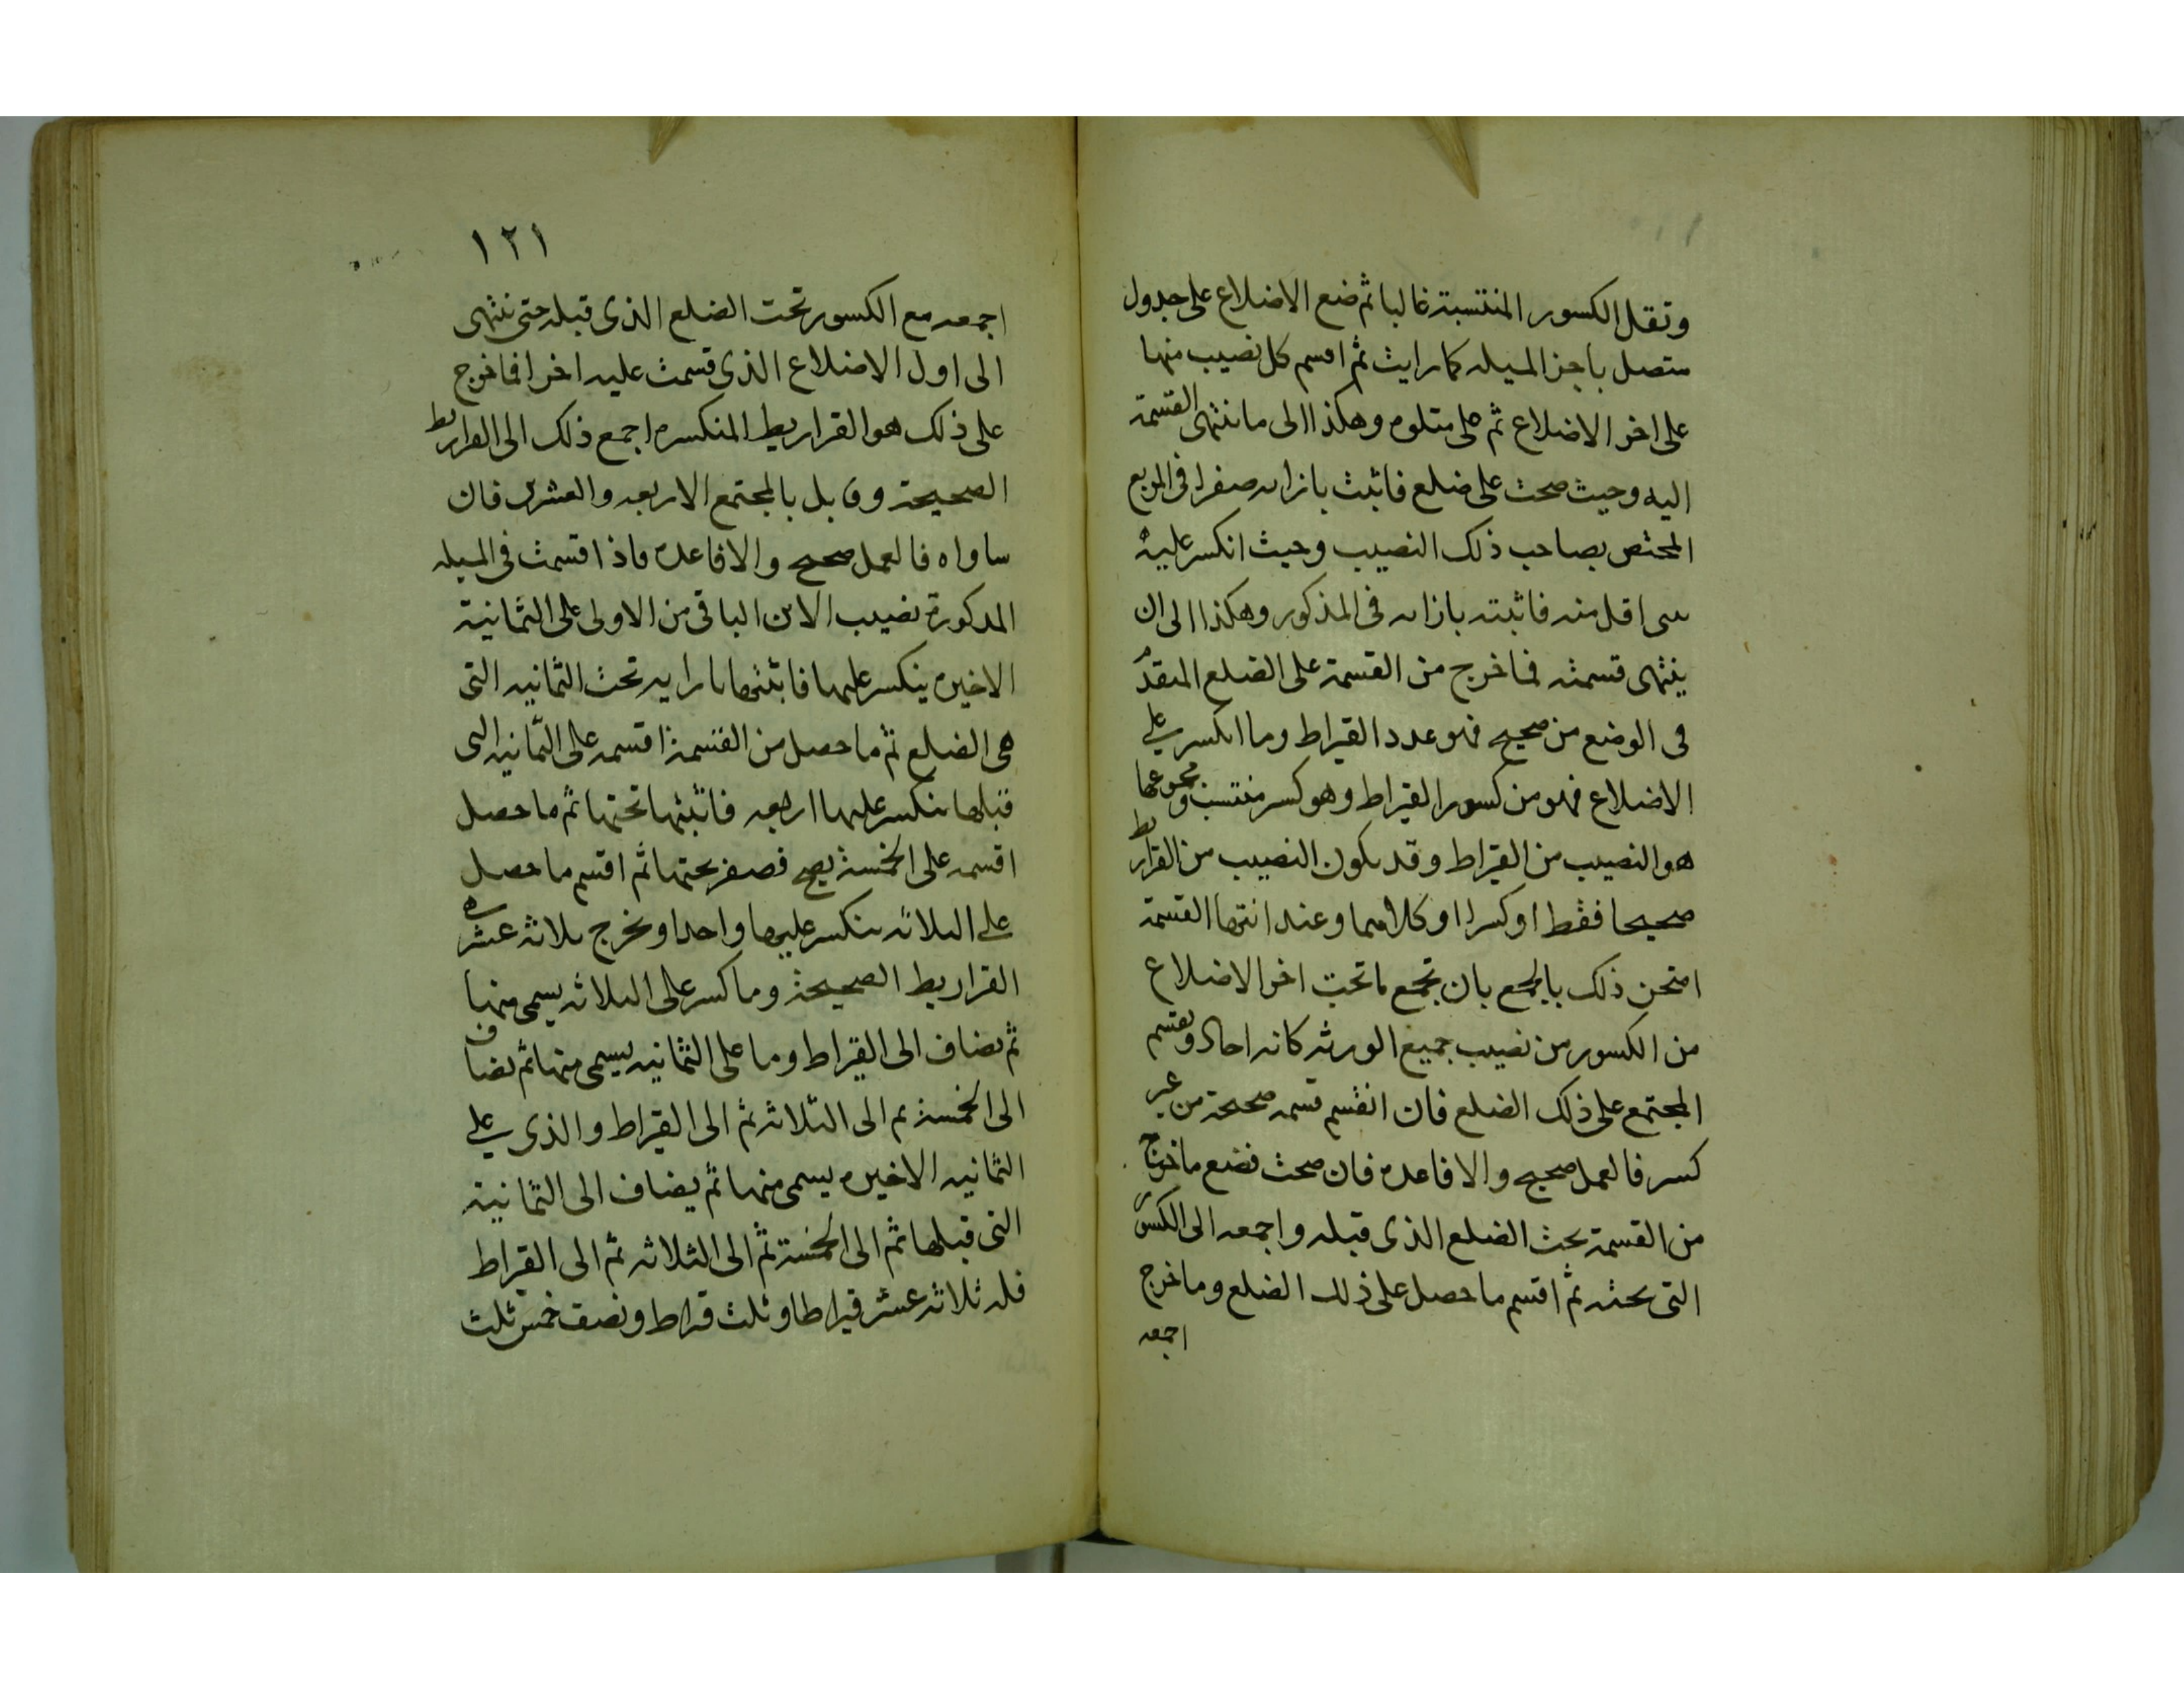 وتقل الكسور المنتسبة غالبا ثم ضع الاضلاع على جدول
متصل باجز المسله كما رايت ثم اقسم كل نصيب منها
على اخر الاضلاع ثم على متلوه وهكذا الى ما تنتهى القسمة
اليه وحيث صحت على ضلع فاثبت بازاىه صفرا فى المربع
المختص بصاحب ذلك النصيب وحيث انكسر عليه
سى اقل منه فاثبته بازاىه فى المذكور وهكذا الى ان
ينتهى قسمته فما خرج من القسمة على الضلع المتقدم
فى الوضع من صحيح فهو عدد القيراط وما انكسر على
الاضلاع فهو من كسور القيراط وهو كسر منتسب ومجموعها
هو النصيب من القيراط وقد يكون النصيب من القراريط
صحيحا فقط او كسرا او كلاهما وعند انتها القسمة
امتحن ذلك بالجمع بان تجمع ما تحت اخر الاضلاع
من الكسور من نصيب جميع الورثه كانه احاد وتقسم
المجتمع على ذلك الضلع فان انقسم قسمه صحيحة من غير
كسر فالعمل صحيح والا فاعده فان صحت فضع ما خرج
من القسمة تحت الضلع الذى قبله واجمعه الى الكسور
التى تحته ثم اقسم ما حصل على ذلك الضلع وما خرج
اجمعه
١٢١
اجمعه مع الكسور تحت الضلع الذى قبله حتى تنتهى
الى اول الاضلاع الذى قسمت عليه اخرا فما خرج
على ذلك هو القراريط المنكسره اجمع ذلك الى القراريط
الصحيحة وقابل بالمجتمع الاربعه والعشرين فان
ساواه فالعمل صحيح والا فاعده فاذا قسمت فى المسله
المذكورة نصيب الابن الباقى من الاولى على الثمانية
الاخيره ينكسر عليها فاثبتها بازايه تحت الثمانيه التى
هى الضلع ثم ما حصل من القسمة اقسمه على الثمانيه التى
قبلها ينكسر عليها اربعه فاثبتها تحتها ثم ما حصل
اقسمه على الخمسة يصح فصفر تحتها ثم اقسم ما حصل
على الثلاثه ينكسر عليها واحدا ويخرج ثلاثة عشره
القراريط الصحيحة وما كسر على الثلاثه يسمى منها
ثم يضاف الى القيراط وما على الثمانيه يسمى منها ثم يضاف
الى الخمسة ثم الى الثلاثه ثم الى القيراط والذى على
الثمانيه الاخيره يسمى منها ثم يضاف الى الثمانية
التى قبلها ثم الى الخمسة ثم الى الثلاثه ثم الى القيراط
فله ثلاثة عشر قيراطا وثلث قيراط ونصف خمس ثلث